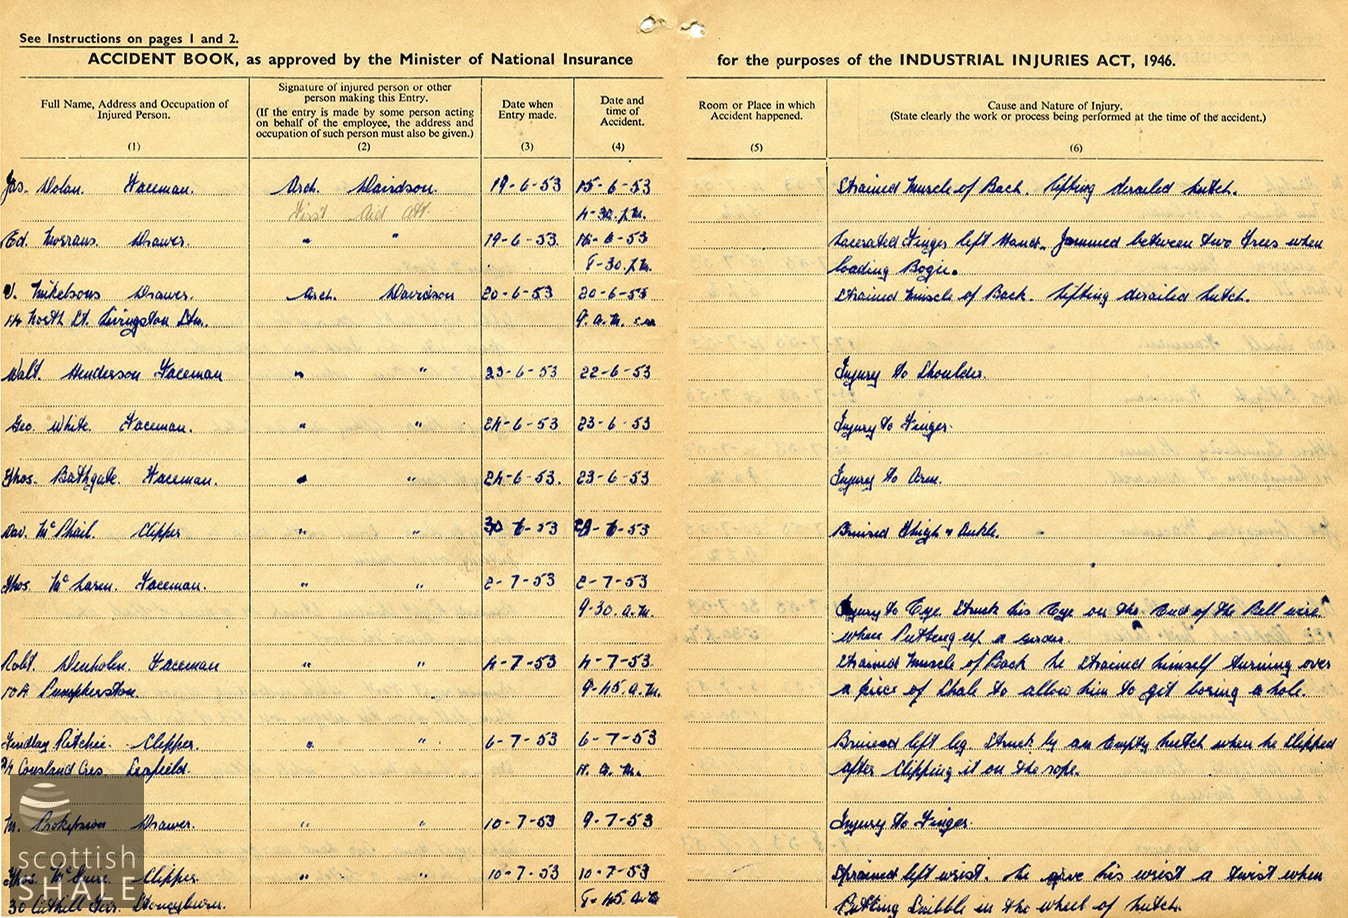 See Instructions on pages 1 and 2.
ACCIDENT BOOK, as approved by the Minister of National Insurance for the purposes of the INDUSTRIAL INJURIES ACT, 1946.
Full Name, Address and Occupation of Injured Person.
(1)
Signature of injured person or other person making this Entry.
(If the entry is made by some person acting on behalf of the employee, the address and occupation of such person must also be given.)
(2)
Date when Entry made.
(3)
Date and time of Accident.
(4)
Room or Place in which Accident happened.
(5)
Cause and Nature of Injury.
(State clearly the work or process being performed at the time of the accident.)
(6)
Jas. Dolan. Faceman. Arch. Davidson. 19-6-53 15-6-53 Strained Muscle of Back. Lifting derailed hutch.
First Aid Att. 4-30. P.M.
Ed. Drawer. " " 19-6-53. 18-6-53 Lacerated Finger left Hand. Jammed between two Trees when
8-30. P.M. loading Bogie.
J. Mikelsons Drawer. Arch. Davidson 20-6-53 20-6-53 Strained Muscle of Back. Lifting derailed hutch.
14 North St. Livingston Stn. 9. a.m.
Walt. Henderson Faceman " " 23-6-53 22-6-53 Injury to Shoulder.
Geo. White. Faceman. " " 24-6-53 23-6-53 Injury to Finger.
Thos. Bathgate. Faceman. " " 24-6-53. 23-6-53 Injury to Arm.
Dav. McPhail. Clipper " " 30-6-53 29-6-53 Bruised Thigh & Ankle.
Thos. McLaren. Faceman. " " 2-7-53 2-7-53
9-30. a.m. Injury to Eye. Struck his Eye on the End of the Bell wire
when Putting up a girder.
Robt. Denholm. Faceman " " 4-7-53 4-7-53. Strained Muscle of Back he strained himself turning over
10A Pumpherston. 9-45. a.m. a piece of Shale to allow him to get boring a hole.
Findlay Ritchie. Clipper. " " 6-7-53 6-7-53 Bruised left leg. Struck by an Empty hutch when he Slipped
Cousland Cres. Seafield. 11. a.m. after Clipping it on the rope.
Drawer. " " 10-7-53 9-7-53 Injury to Finger.
Thos. McGuire. Clipper " " 10-7-53 10-7-53 Sprained left wrist. He give his wrist a twist when
30 Cuthill Terr. Stoneyburn. 8-45. a.m Putting Snibble in the wheel of hutch.
scottish
SHALE